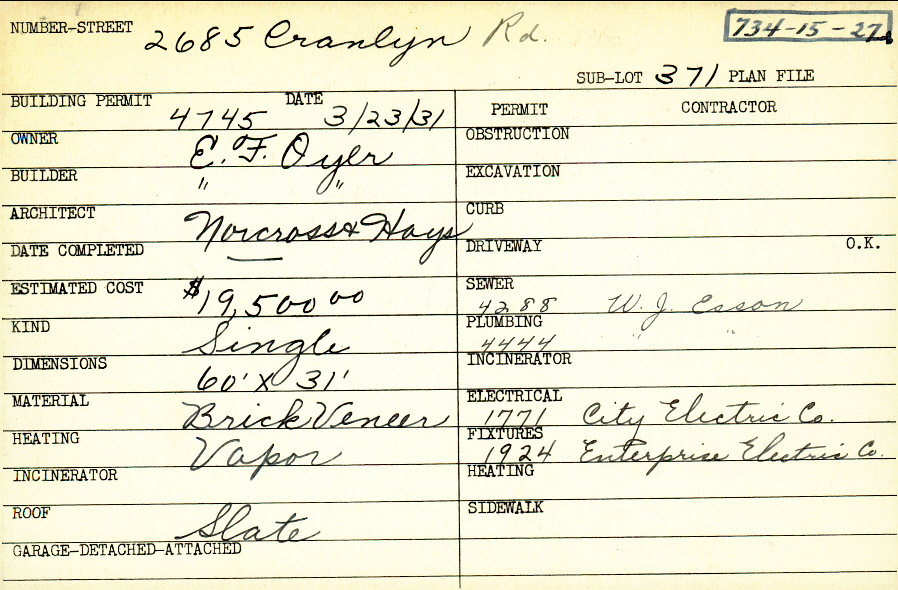 NUMBER-STREET 2685 Cranlyn Rd. 734-15-27
SUB-LOT 371 PLAN FILE
BUILDING PERMIT 4745 DATE 3/23/31
OWNER E. F. Oyler
BUILDER " "
ARCHITECT Norcross & Hays
DATE COMPLETED
ESTIMATED COST $19,500 00
KIND Single
DIMENSIONS 60' X 31'
MATERIAL Brick Veneer
HEATING Vapor
INCINERATOR
ROOF Slate
GARAGE-DETACHED-ATTACHED
PERMIT CONTRACTOR
OBSTRUCTION
EXCAVATION
CURB
DRIVEWAY O.K.
SEWER 4288 W. J. Esson
PLUMBING 4444 " "
INCINERATOR
ELECTRICAL 1771 City Electric Co.
FIXTURES 1924 Enterprise Electric Co.
HEATING
SIDEWALK